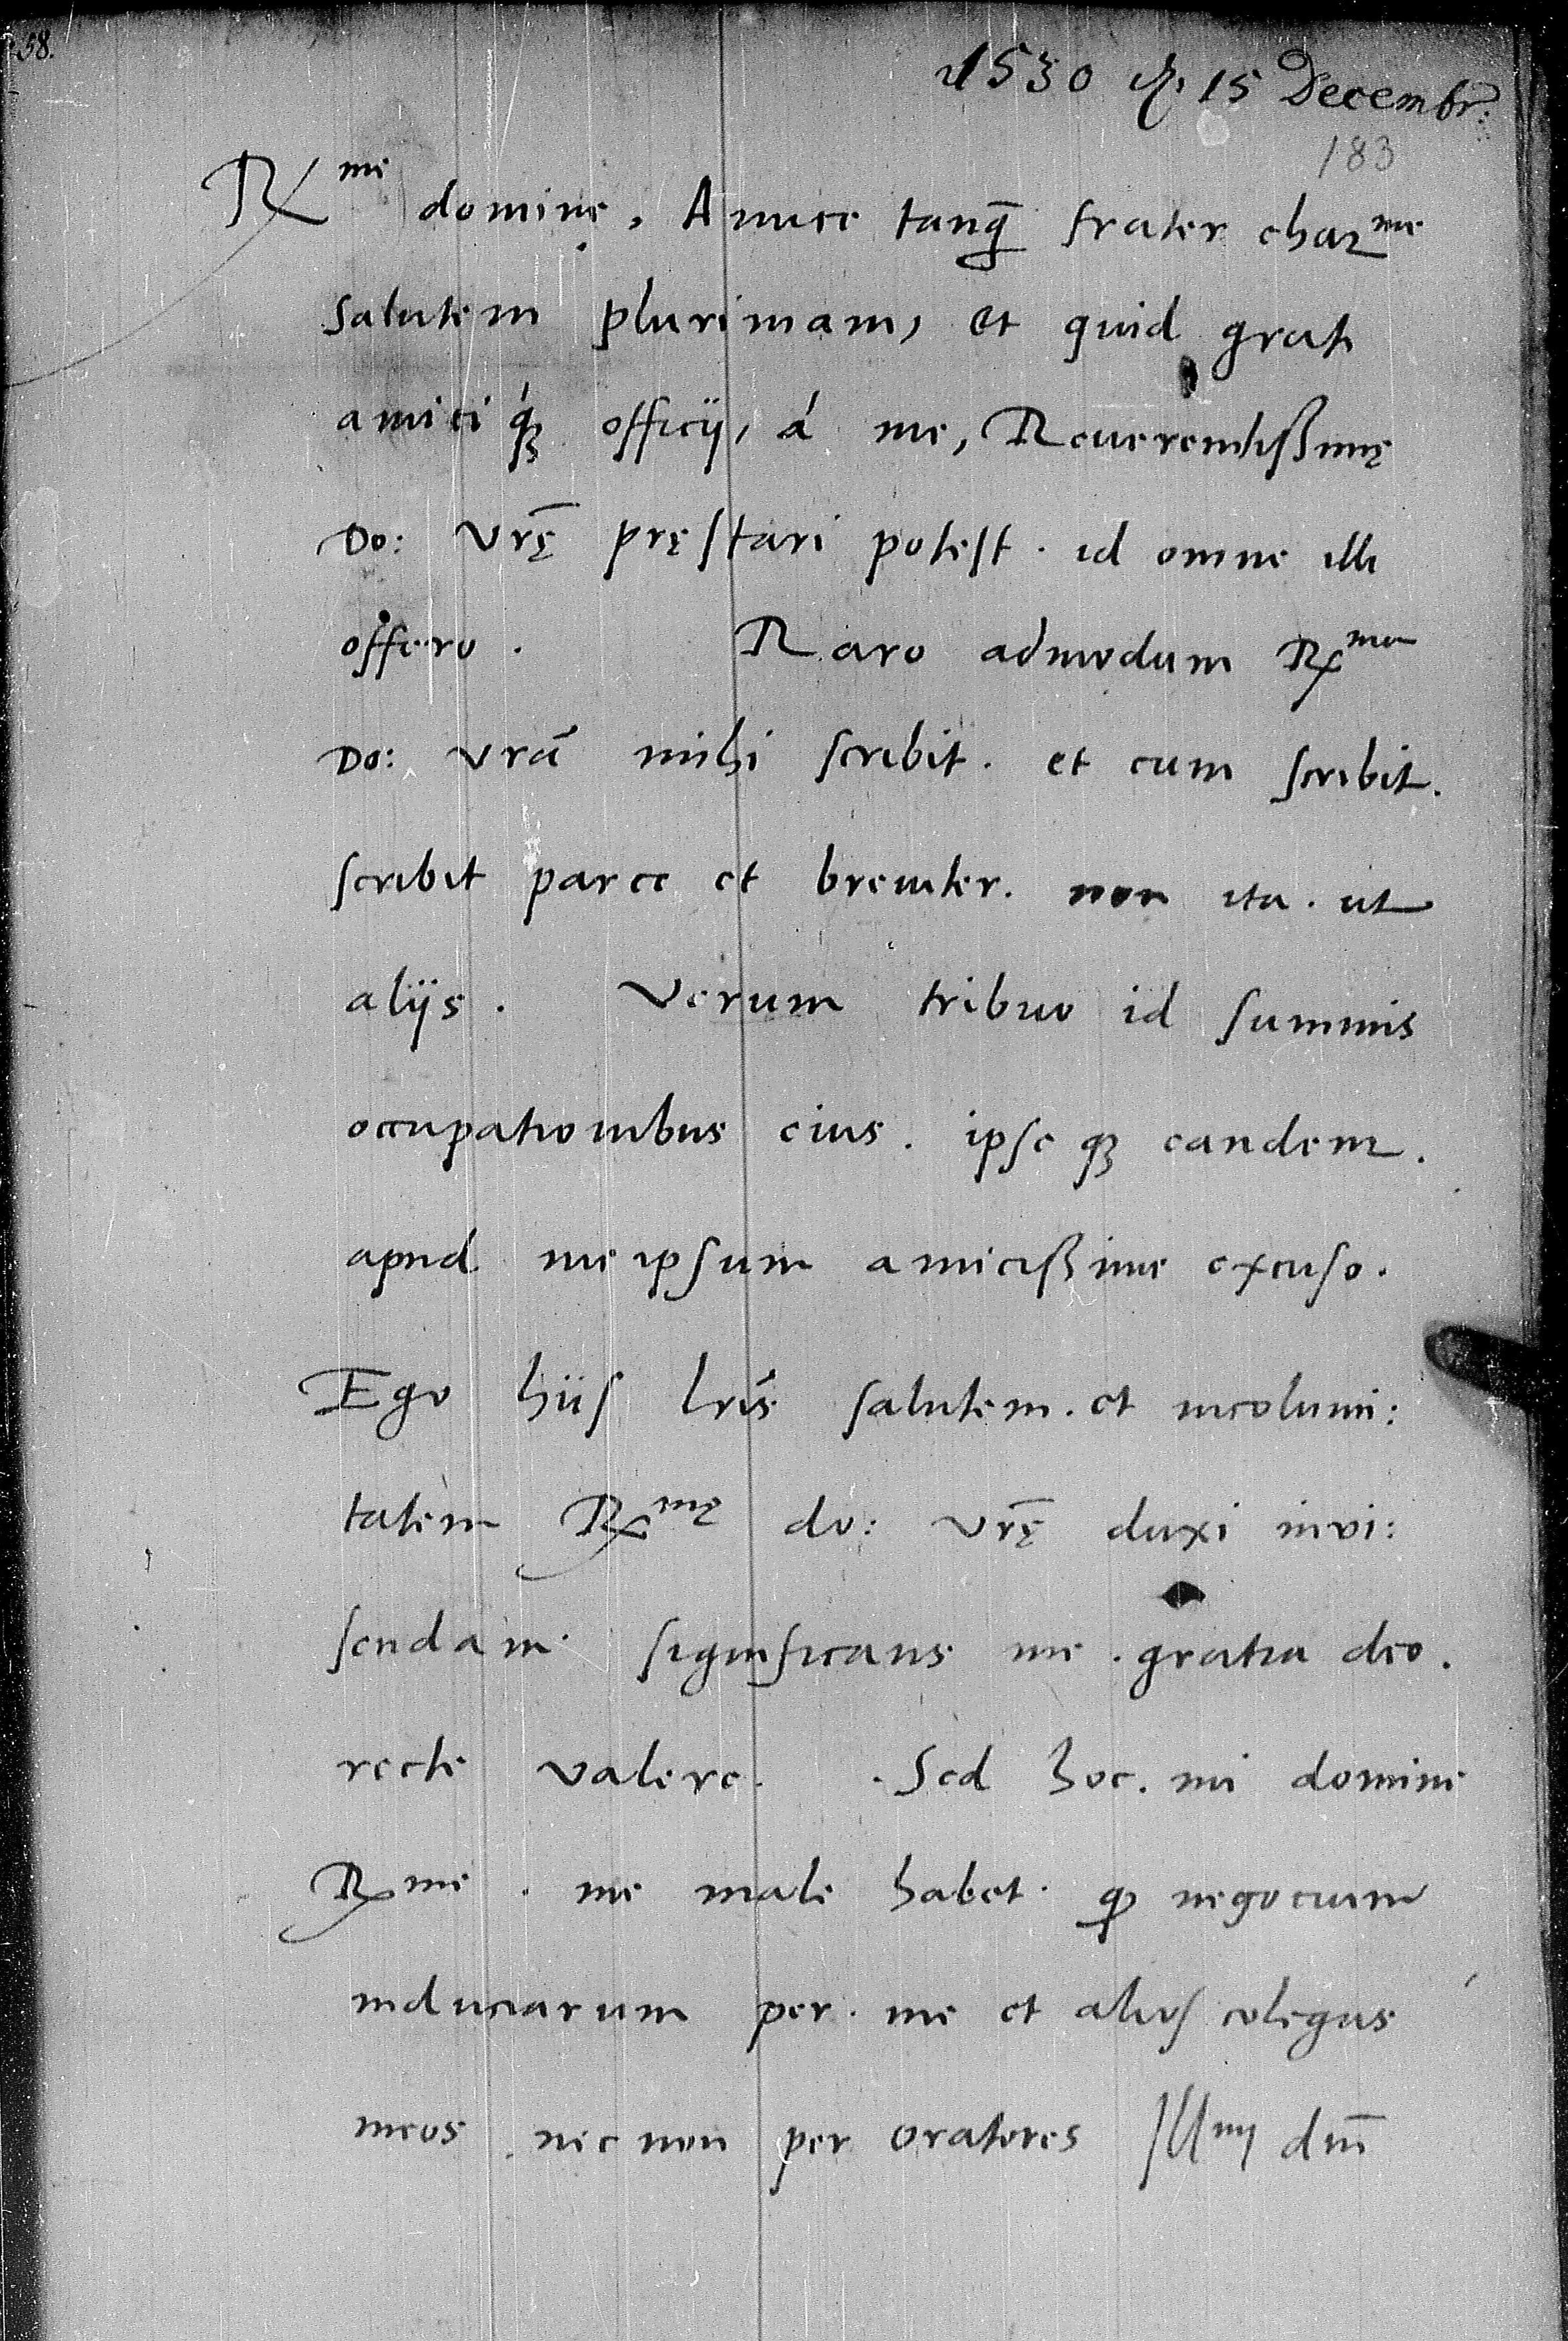 58.
1530 d. 15 Decembr:
183
Rme domine, Amice tanq̄ frater charme
Salutem plurimam, et quid grati
amici q́ꝫ officij, á me, Reuerendißimę
Do: Vrę̄ pręstari potest. id omne illi
offero. Raro admodum Rma
Do: Vrá mihi scribit. et cum scribit.
scribit parce et breuiter. non ita. ut
alijs. Verum tribuo id summis
occupationibus eius. ipse qꝫ eandem.
apud me ipsum amicißime excuso.
Ego hijs lrı̃s salutem. et incolumi:
tatem Rmę do: Vrę̄ duxi invi:
sendam. significans me. gratia deo.
recte valere. Sed hoc. mi domine
Rme. me male habet. ꝙ negocium
induciarum per. me et alios colegas
meos. nec non per oratores Illmi dm̄